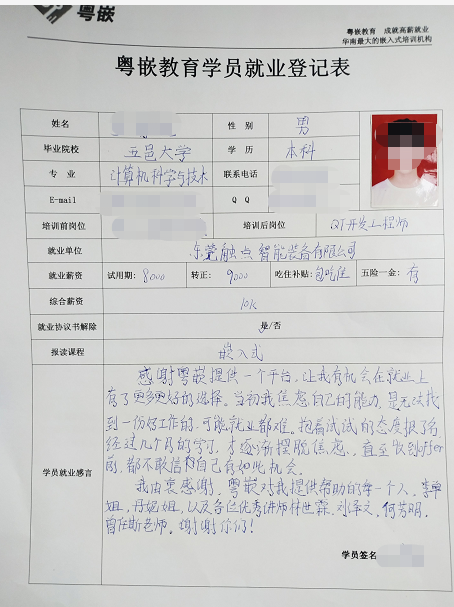 粤嵌
粤嵌教育 成就高薪就业
华南最大的嵌入式培训机构
粤嵌教育学员就业登记表
姓名 性 别 男
毕业院校 五邑大学 学 历 本科
专 业 计算机科学与技术 联系电话
E-mail Q Q
培训前岗位 培训后岗位 QT开发工程师
就业单位 东莞触点智能装备有限公司
就业薪资 试用期: 8000 转正: 9000 吃住补贴: 包吃住 五险一金: 有
综合薪资 10k
就业协议书解除 是/否
报读课程 嵌入式
学员就业感言
感谢粤嵌提供一个平台，让我有机会在就业上
有了更多更好的选择。当初我焦虑自己的能力，是无法找
到一份好工作的，可能就业都难。抱着试试的态度报了名
经过几个月的学习，才逐渐摆脱焦虑，直至收到offer
前，都不敢信自己有如此机会。
我由衷感谢，粤嵌对我提供帮助的每一个人，李
姐，丹妮姐，以及各位优秀讲师林世霖，刘泽文，何芳明，
老师。谢谢你们！
学员签名